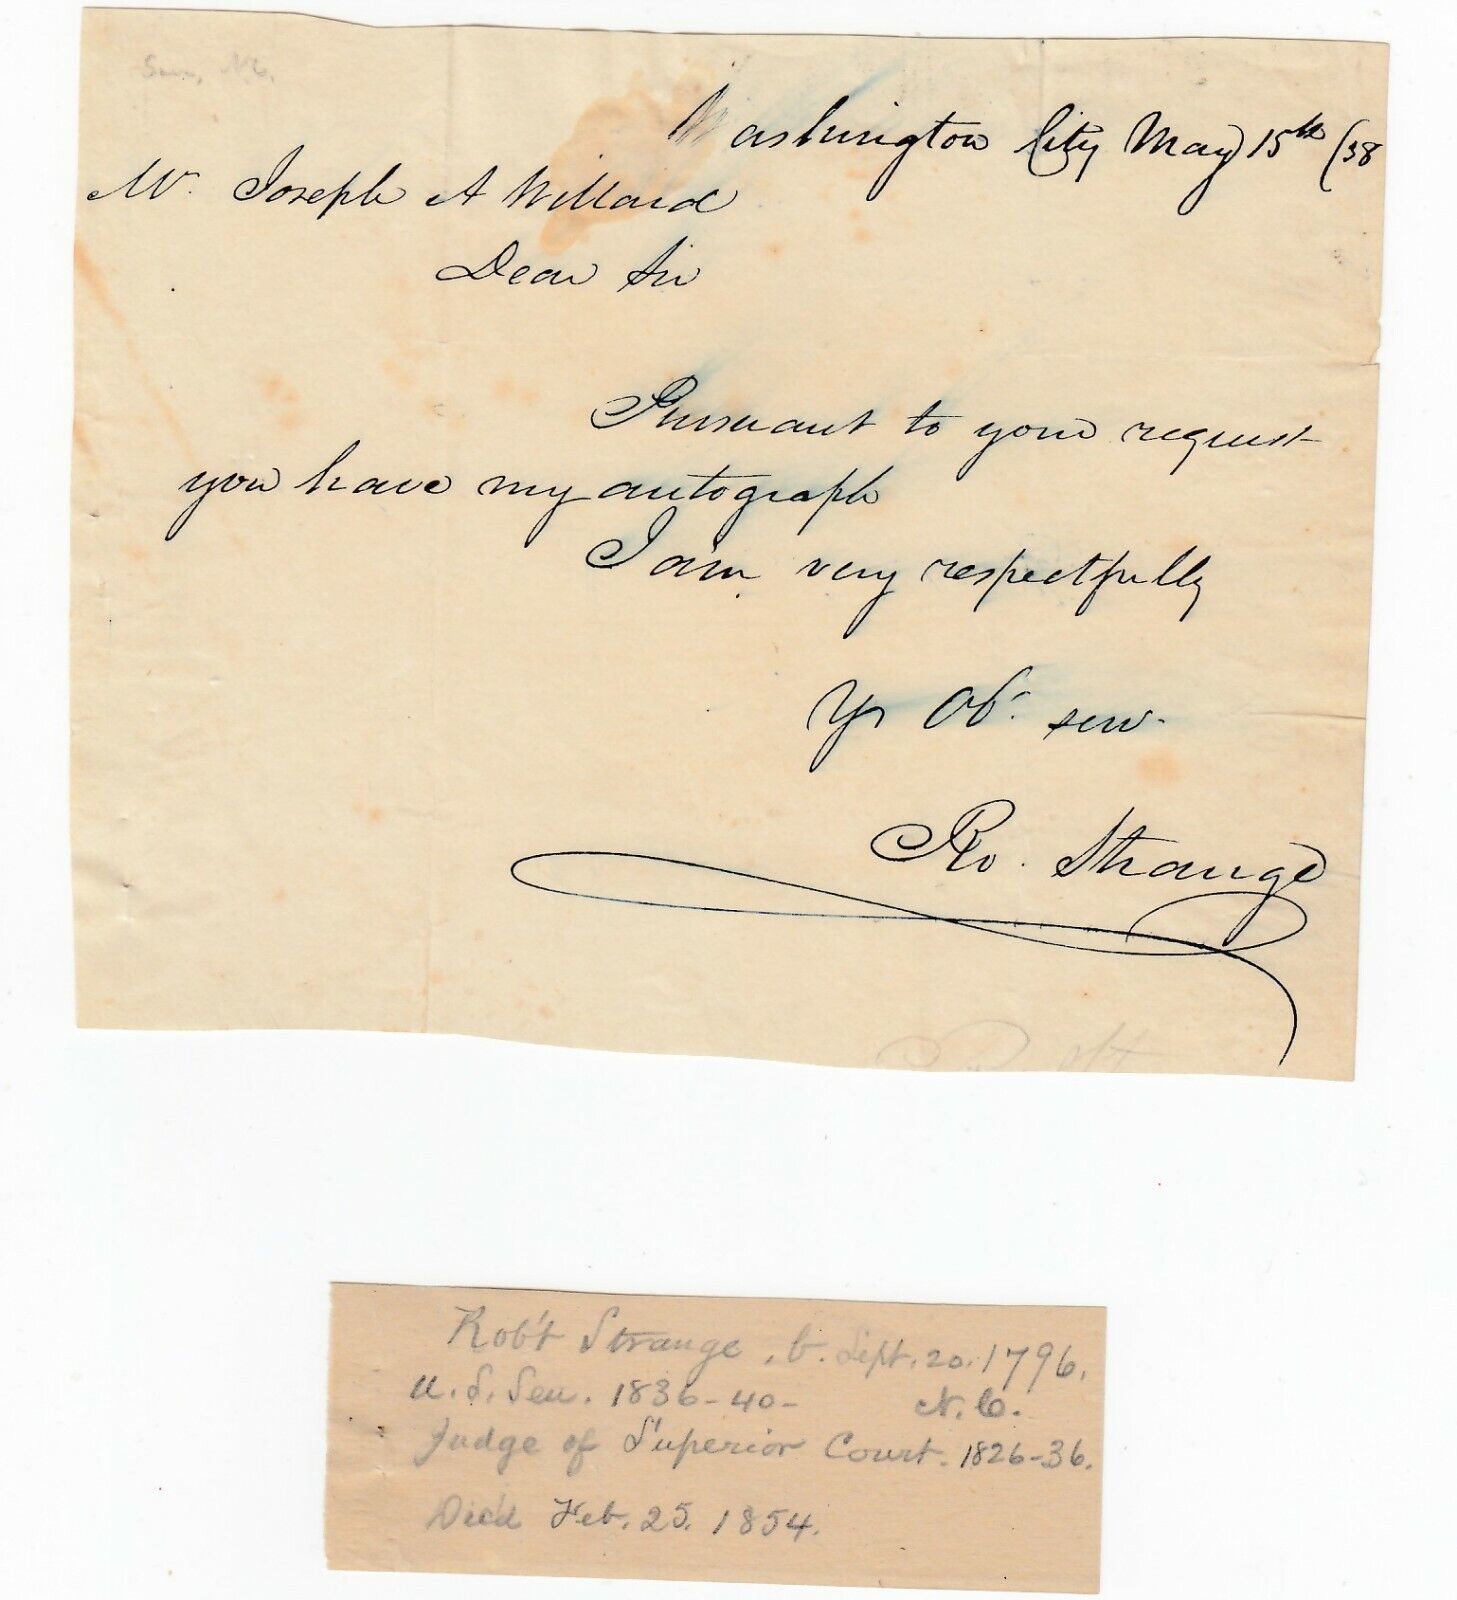 Sen, N.C.
Washington City May 15th /38
Mr. Joseph A Willard
Dear Sir
Pursuant to your request
you have my autograph
I am very respectfully
Yr Ob. serv.
Ro. Strange
Rob't Strange, b. Sept. 20. 1796.
U. S. Sen. 1836-40- N.C.
Judge of Superior Court. 1826-36.
Died Feb. 25. 1854.